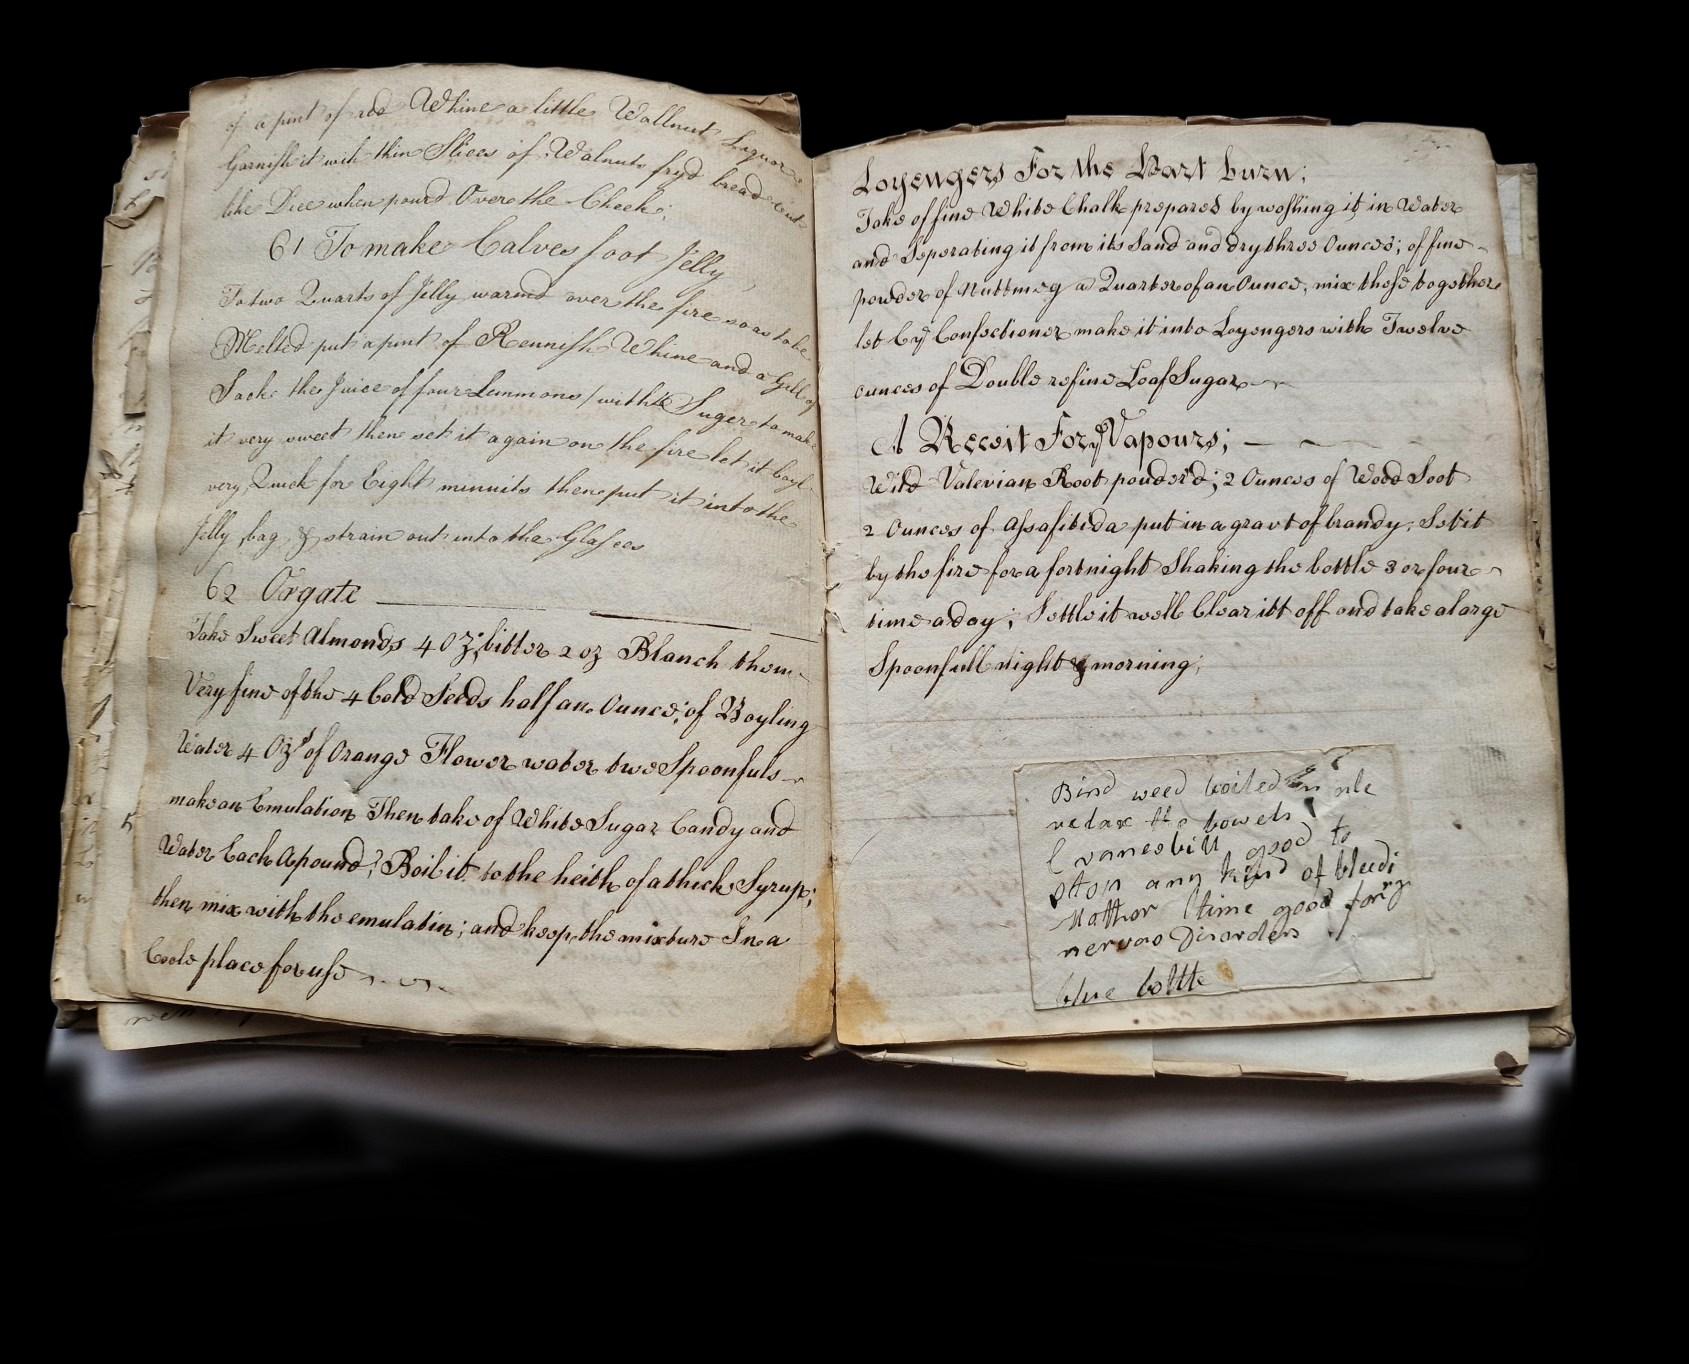 of a pint of red Whine a little Wallnut Liquor
Garnish it with thin Slices of Walnuts fryd bread cut
like Dice when pourd Over the Cheek;
61 To make Calves foot Jelly,
To two Quarts of Jelly warmd over the fire so as to be
Melted put a pint of Rennish Whine and a Gill of
Sack the Juice of four Lemmons / with Suger to make
it very sweet then set it again on the fire let it boyl
very Quick for Eight minnits then put it into the
Jelly bag & strain out into the Glasees
62 Orgate
Take Sweet Almonds 4 oz; bitter 2 oz Blanch them
Very fine of the 4 Cold Seeds half an Ounce; of Boyling
Water 4 Ozs of Orange Flower water two Spoonfuls
make an Emulation Then take of White Sugar Candy and
Water Each A pound; Boil it to the heith of a thick Syrup;
then mix with the emulatin; and keep the mixture In a
Coole place for use
Loyengers For the Hart burn;
Take of fine White Chalk prepared by woshing it in Water
and Seperating it from its Sand and dry three Ounces; of fine
powder of Nuttmeg a Quarter of an Ounce, mix these together
let ye Confectioner make it into Loyengers with Twelve
ounces of Double refine Loaf Sugar
A Receit For ye Vapours;
Wild Valerian Root pouder'd; 2 Ounces of Wood Soot
2 Ounces of Assafitida put in a quart of brandy; Set it
by the fire for a fortnight Shaking the bottle 3 or four
time a day; Settle it well Clear itt off and take a large
Spoonfull night & morning;
Bind weed boiled in ale
relax the bowels
Cranesbill good to
stop any kind of bleedi
Mather time good for
nervas Disorders
blue bottle